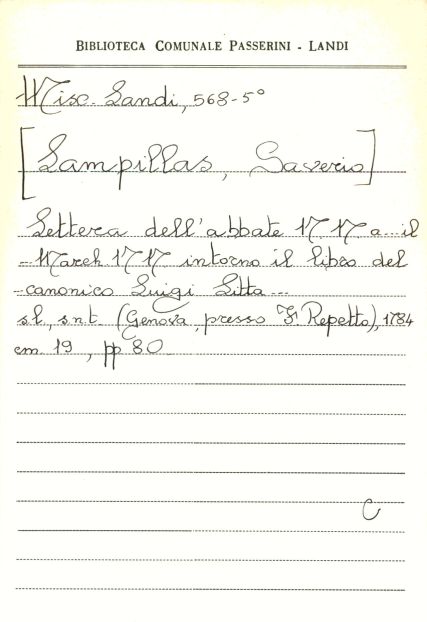 BIBLIOTECA COMUNALE PASSERINI - LANDI
Misc. Landi, 568-5°
[Lampillas, Saverio]
Lettera dell'abbate NN a... il
...March NN intorno il libro del
canonico Luigi Litta...
s.l., s.n.t. (Genova, presso F. Repetto), 1784
cm. 19, pp 80
C